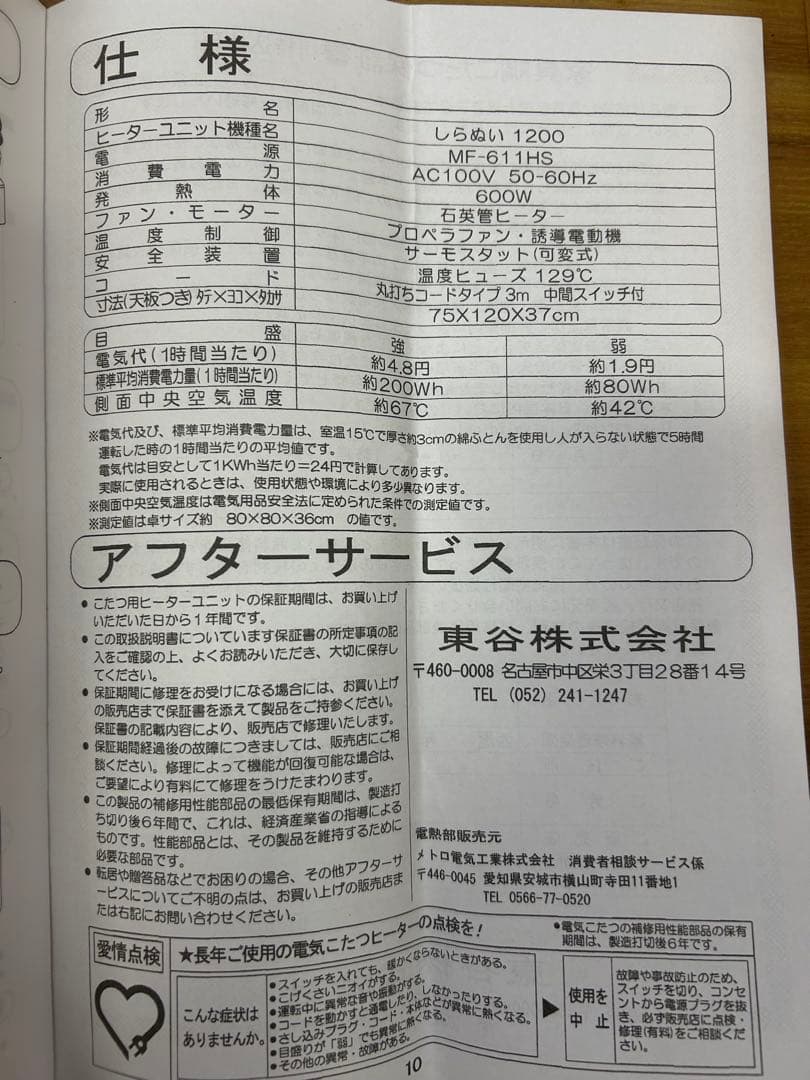 仕様
形名 しらぬい 1200
ヒーターユニット機種名 MF-611HS
電源 AC100V 50-60Hz
消費電力 600W
発熱体 石英管ヒーター
ファン・モーター プロペラファン・誘導電動機
温度制御 サーモスタット(可変式)
安全装置 温度ヒューズ 129℃
コード 丸打ちコードタイプ 3m 中間スイッチ付
寸法(天板つき)タテ×ヨコ×タカサ 75X120X37cm
目盛 強 弱
電気代(1時間当たり) 約4.8円 約1.9円
標準平均消費電力量(1時間当たり) 約200Wh 約80Wh
側面中央空気温度 約67℃ 約42℃
※電気代及び、標準平均消費電力量は、室温15℃で厚さ約3cmの綿ふとんを使用し人が入らない状態で5時間
運転した時の1時間当たりの平均値です。
電気代は目安として1KWh当たり=24円で計算してあります。
実際に使用されるときは、使用状態や環境により多少異なります。
※側面中央空気温度は電気用品安全法に定められた条件での測定値です。
※測定値は卓サイズ約 80×80×36cm の値です。
アフターサービス
●こたつ用ヒーターユニットの保証期間は、お買い上げ
いただいた日から1年間です。
●この取扱説明書についています保証書の所定事項の記
入をご確認の上、よくお読みいただき、大切に保存し
てください。
●保証期間に修理をお受けになる場合には、お買い上げ
の販売店まで保証書を添えて製品をご持参ください。
保証書の記載内容により、販売店で修理いたします。
●保証期間経過後の故障につきましては、販売店にご相
談ください。修理によって機能が回復可能な場合は、
ご要望により有料にて修理をうけたまわります。
●この製品の補修用性能部品の最低保有期間は、製造打
ち切り後6年間で、これは、経済産業省の指導による
ものです。性能部品とは、その製品を維持するために
必要な部品です。
●転居や贈答品などでお困りの場合、その他アフターサ
ービスについてご不明の点は、お買い上げの販売店ま
たは右記にお問い合わせください。
東谷株式会社
〒460-0008 名古屋市中区栄3丁目28番14号
TEL (052) 241-1247
電熱部販売元
メトロ電気工業株式会社 消費者相談サービス係
〒446-0045 愛知県安城市横山町寺田11番地1
TEL 0566-77-0520
愛情点検
★長年ご使用の電気こたつヒーターの点検を!
●電気こたつの補修用性能部品の保有
期間は、製造打切後6年です。
こんな症状は
ありませんか。
●スイッチを入れても、暖かくならないときがある。
●こげくさいニオイがする。
●運転中に異常な音や振動がする。
●コードを動かすと通電したり、しなかったりする。
●さし込みプラグ・コード・本体などが異常に熱くなる。
●目盛りが「弱」でも異常に熱くなる。
●その他の異常・故障がある。
▶
使用を
中止
故障や事故防止のため、
スイッチを切り、コンセ
ントから電源プラグを抜
き、必ず販売店に点検・
修理(有料)をご相談くだ
さい。
10